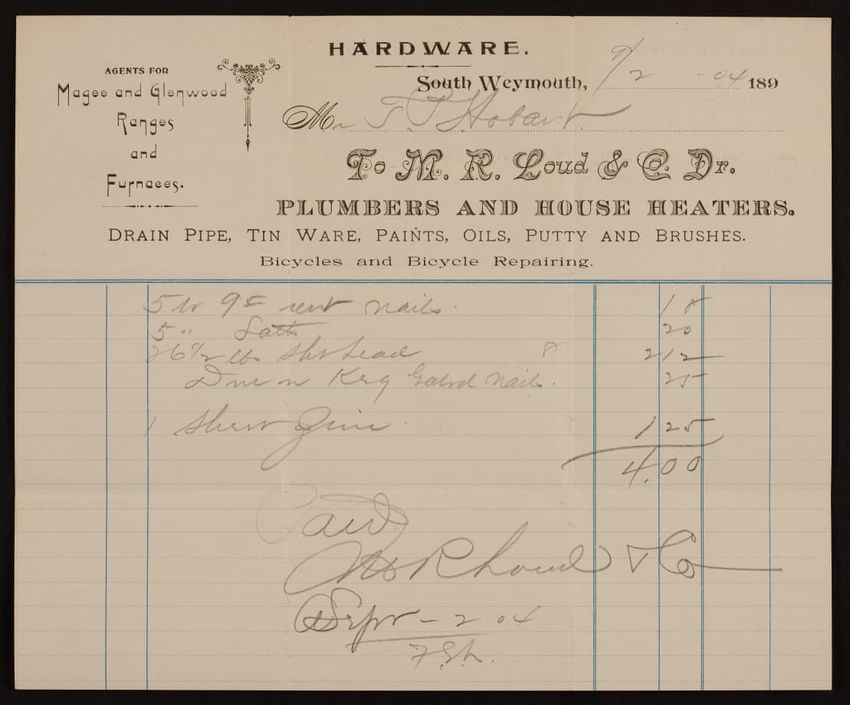 HARDWARE.
AGENTS FOR
Magee and Glenwood
Ranges
and
Furnaces.
South Weymouth, 9/2 04 189
Mr T. P. Hobart
To M. R. Loud & Co. Dr.
PLUMBERS AND HOUSE HEATERS.
DRAIN PIPE, TIN WARE, PAINTS, OILS, PUTTY AND BRUSHES.
Bicycles and Bicycle Repairing.
5 lb 9c cut nails 18
5 " Lath 20
26 1/2 lbs Sht Lead 8 2 12
Due on Keg Galvd Nails. 25
1 Sheet Zinc 1 25
4.00
Paid
M R Loud & Co
Sept - 2 04